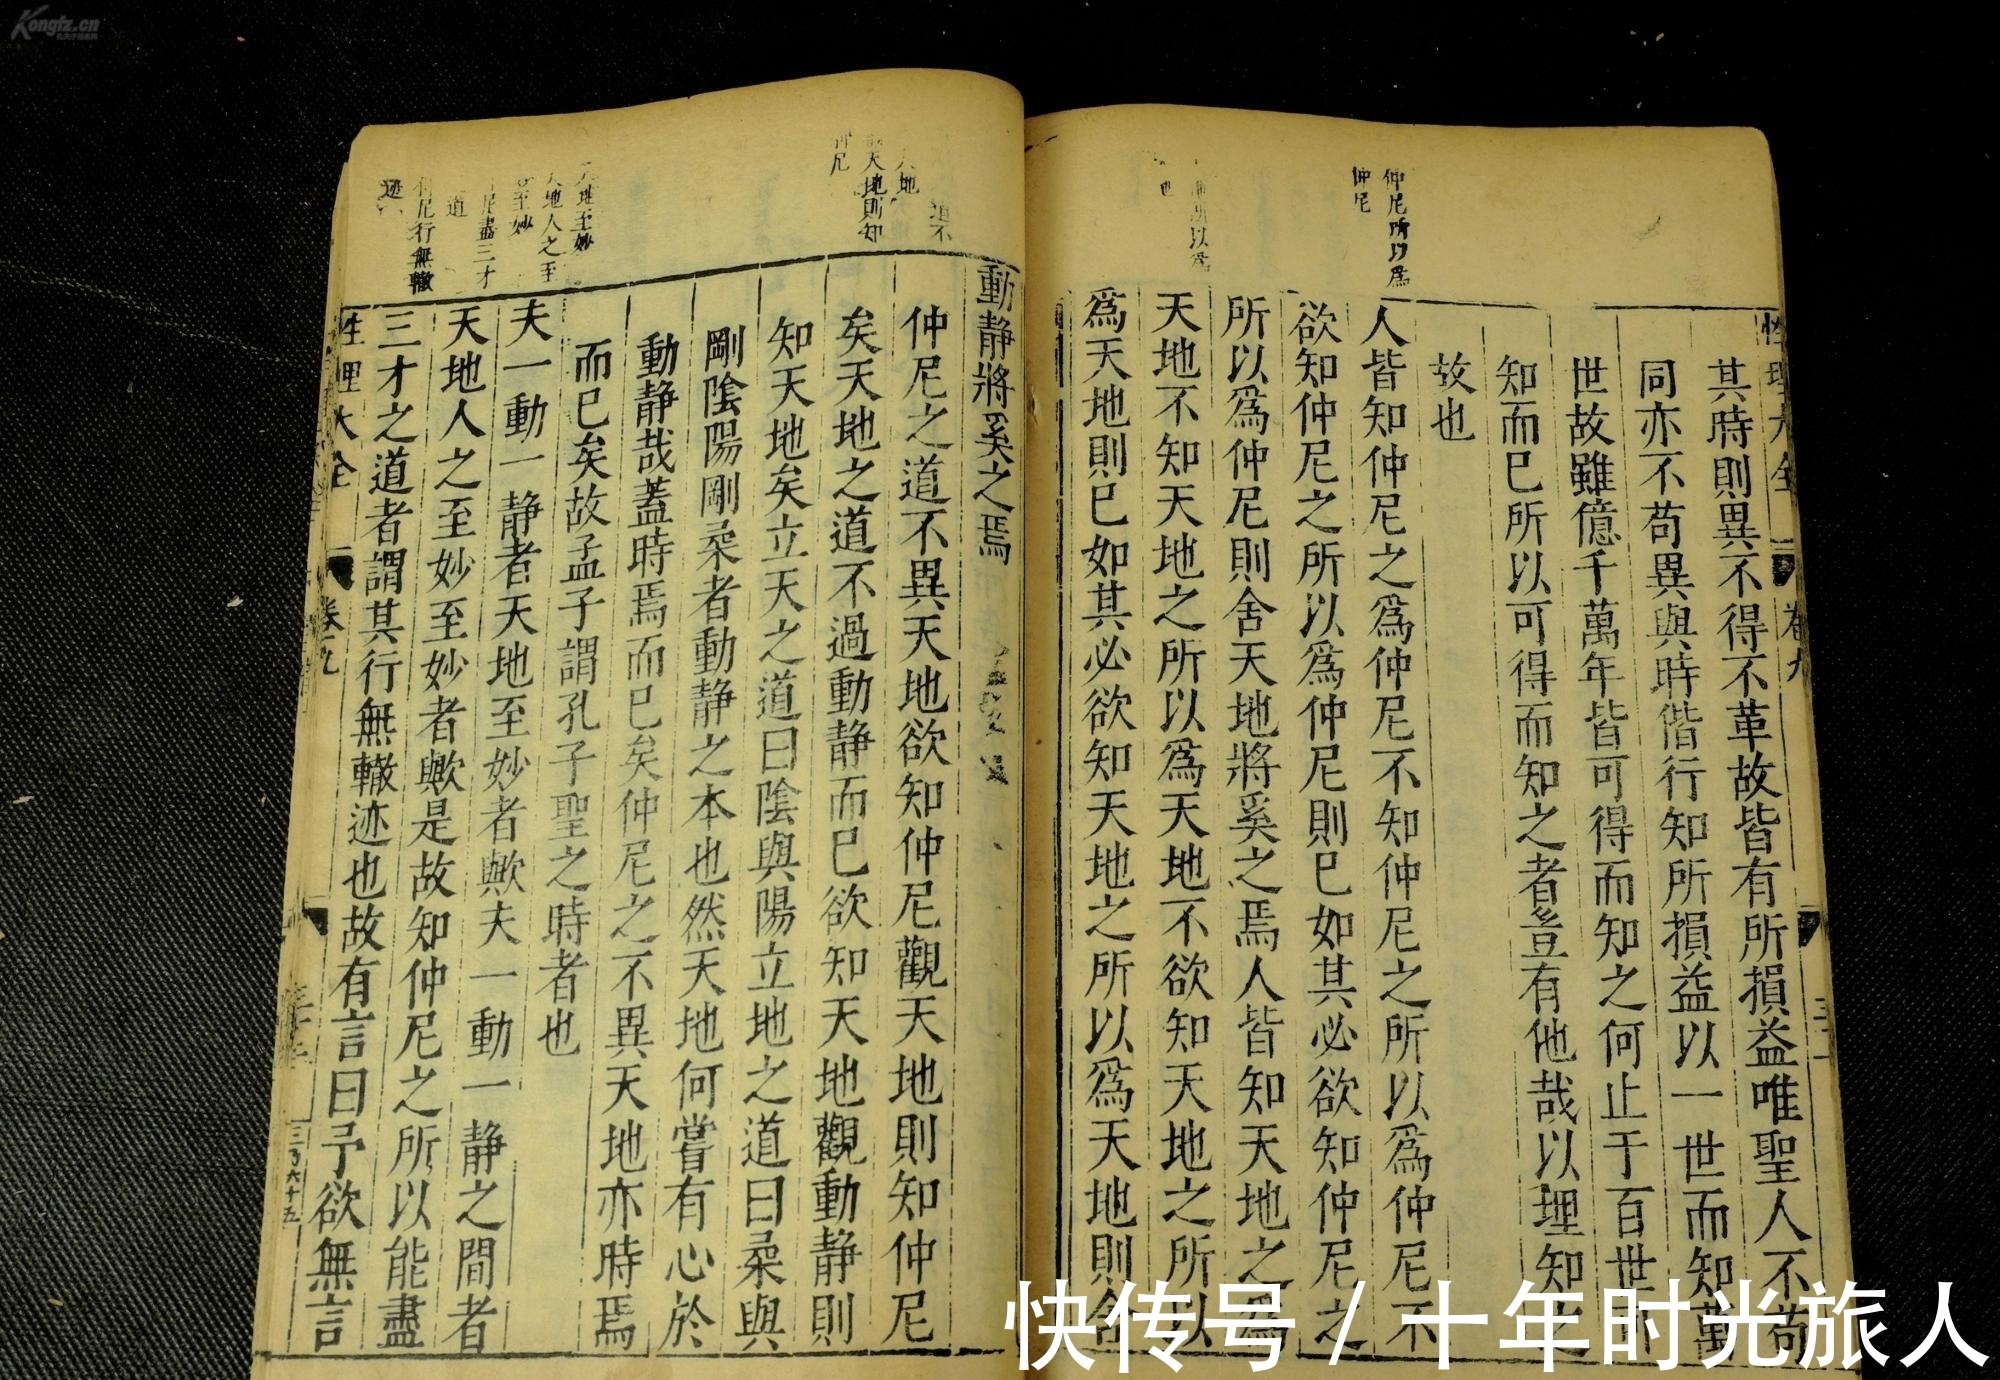 Kongfz.cn
性理大全
卷九
其時則異不得不革故皆有所損益唯聖人不苟
同亦不苟異與時偕行知所損益以一世而知萬
世故雖億千萬年皆可得而知之何止于百世而
知而已所以可得而知之者豈有他哉以理知之
故也
仲尼所以爲
仲尼
人皆知仲尼之爲仲尼不知仲尼之所以爲仲尼不
欲知仲尼之所以爲仲尼則已如其必欲知仲尼之
所以爲仲尼則舍天地將奚之焉人皆知天地之爲
天地不知天地之所以爲天地不欲知天地之所以
爲天地則已如其必欲知天地之所以爲天地則舍
動静將奚之焉
道不
天地
天地則知
仲尼
仲尼之道不異天地欲知仲尼觀天地則知仲尼
矣天地之道不過動静而已欲知天地觀動静則
知天地矣立天之道曰陰與陽立地之道曰柔與
剛陰陽剛柔者動静之本也然天地何嘗有心於
動静哉蓋時焉而已矣仲尼之不異天地亦時焉
而已矣故孟子謂孔子聖之時者也
天地至妙
天地人之至
至妙
仲尼盡三才
道
仲尼行無轍
迹
夫一動一静者天地至妙者歟夫一動一静之間者
天地人之至妙至妙者歟是故知仲尼之所以能盡
三才之道者謂其行無轍迹也故有言曰予欲無言
性理大全
卷九
三乃六十五
快传号/十年时光旅人